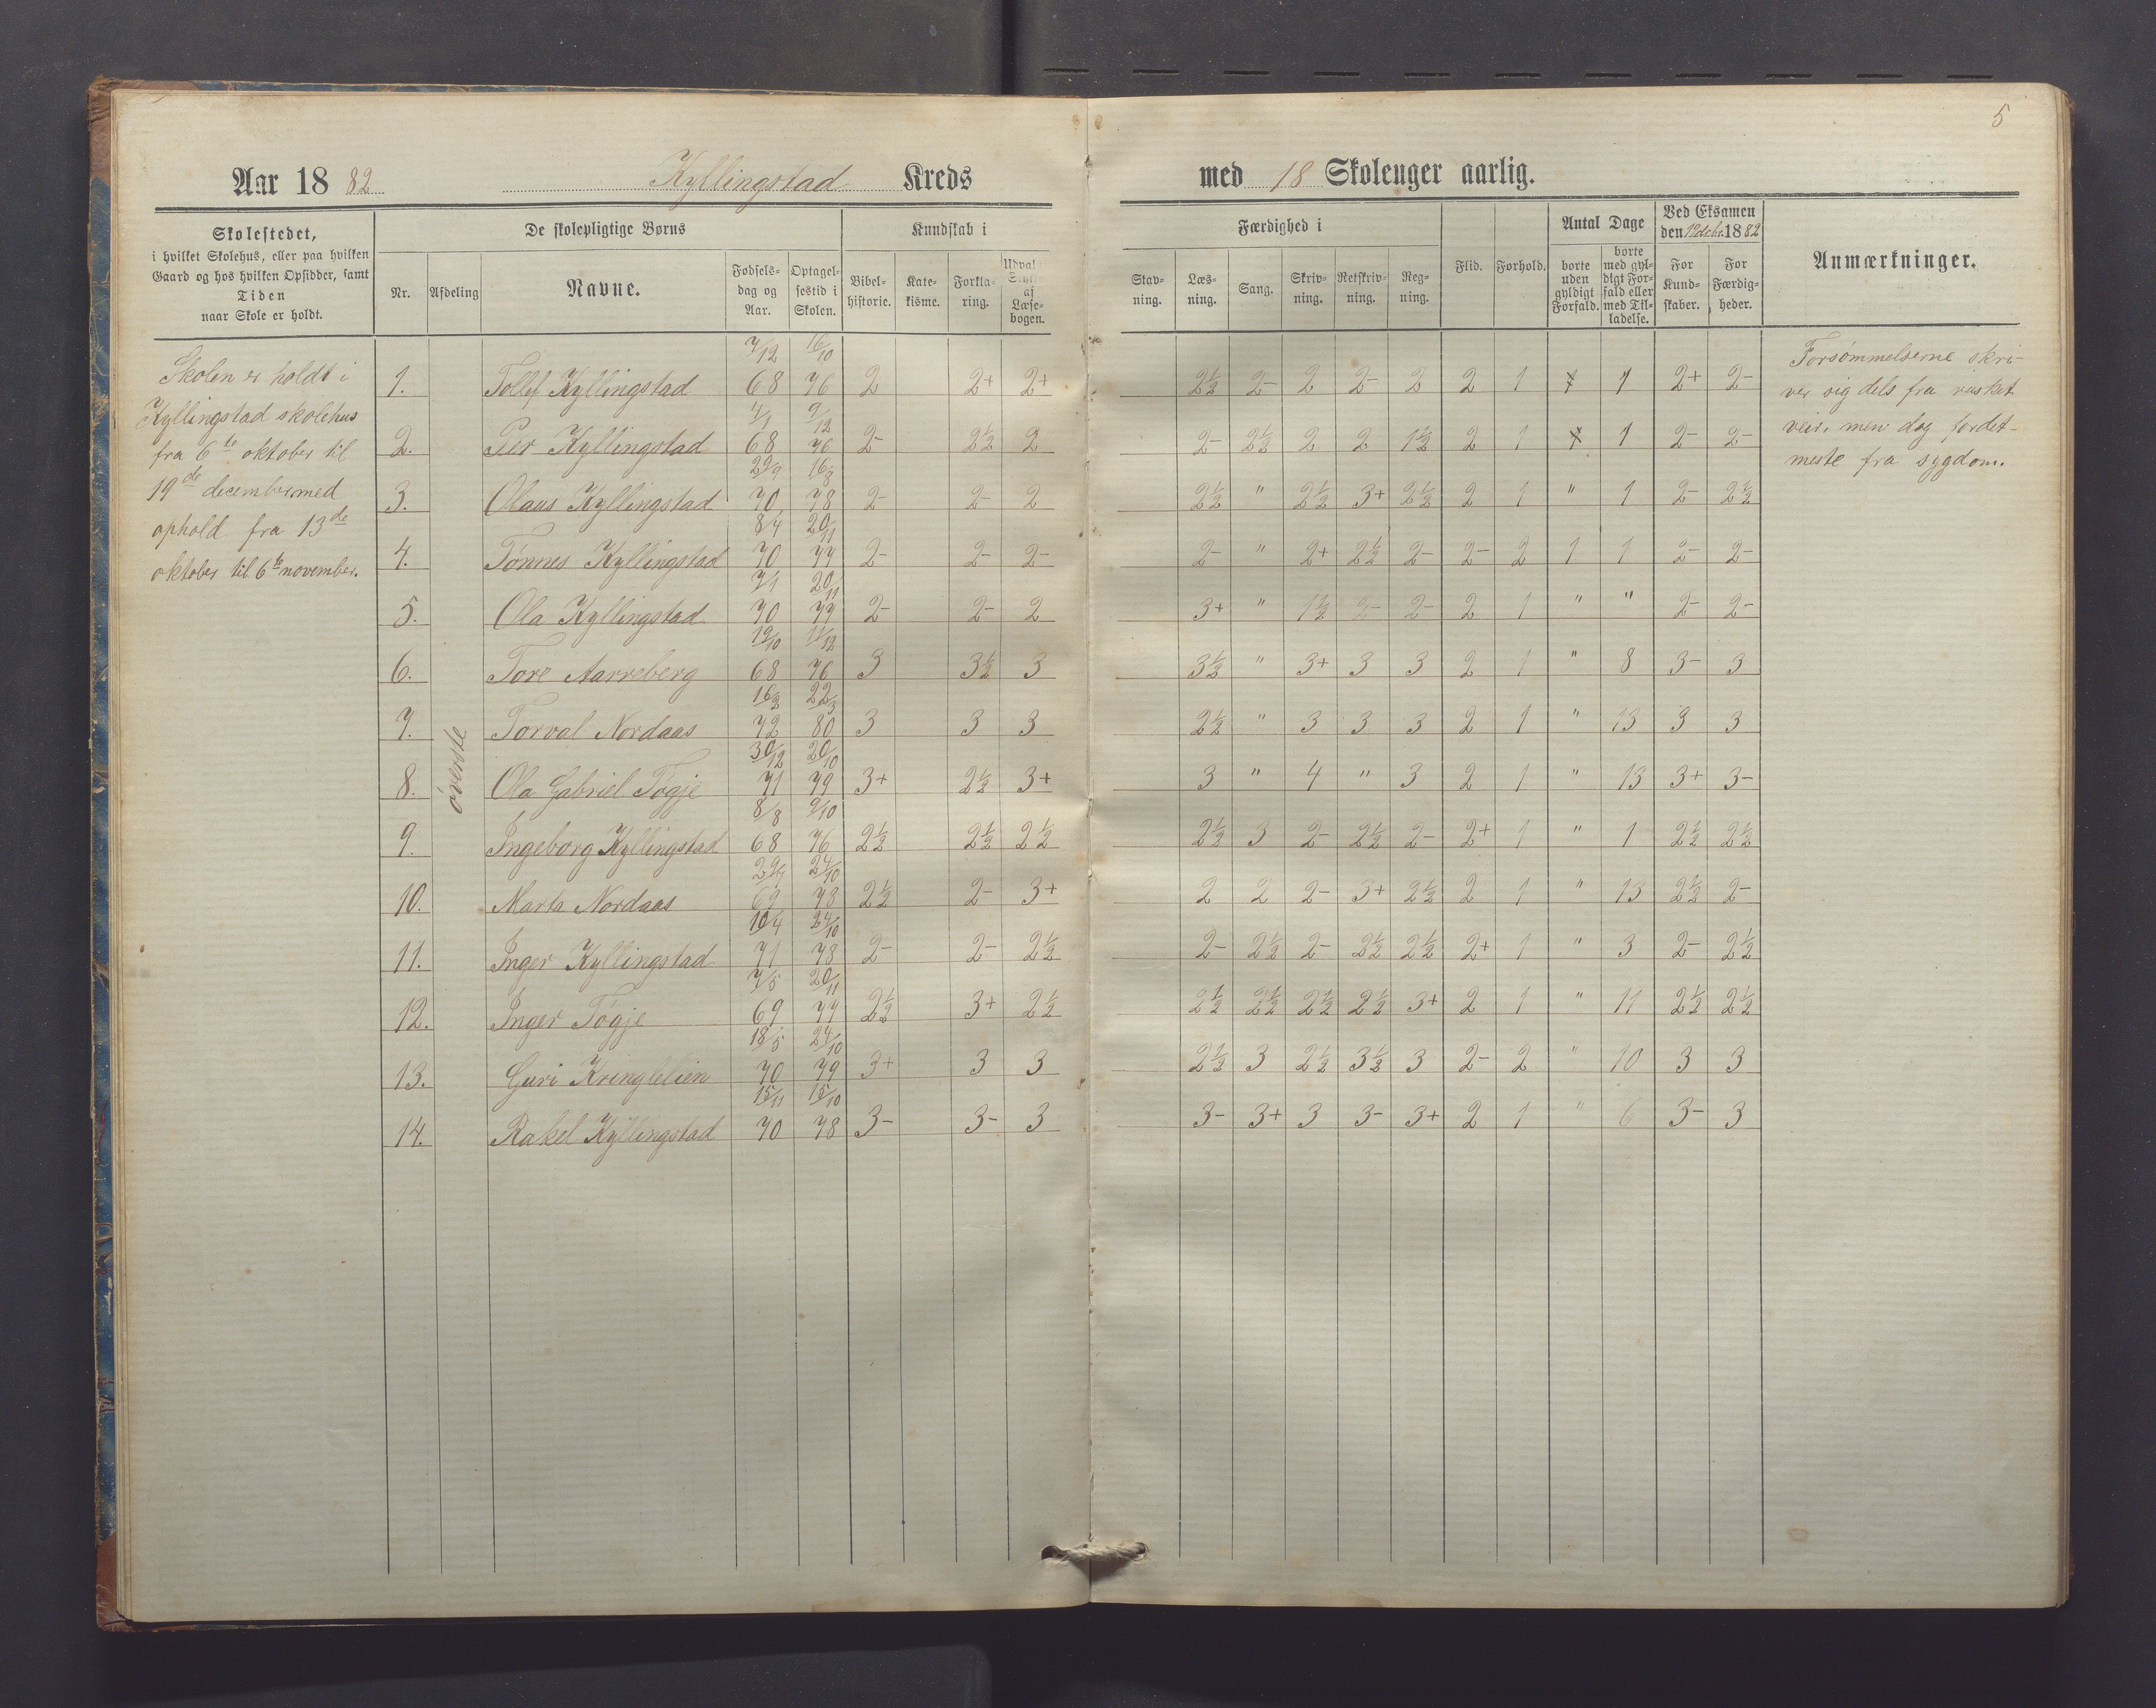 5
Aar 1882 Kyllingstad Kreds med 18 Skoleuger aarlig.
Skolestedet,
i hvilket Skolehus, eller paa hvilken
Gaard og hos hvilken Opsidder, samt
Tiden
naar Skole er holdt.
De skolepligtige Børns
Nr. Afdeling Navne. Fødselsdag og Aar. Optagelsestid i Skolen.
Kundskab i
Bibelhistorie. Katekisme. Forklaring. Udval Styk af Læsebogen.
Færdighed i
Stavning. Læsning. Sang. Skrivning. Retskrivning. Regning.
Flid. Forhold.
Antal Dage
borte uden gyldigt Forfald. borte med gyldigt Forfald eller med Tilladelse.
Ved Eksamen
den 19de br. 1882
For Kundskaber. For Færdigheder.
Anmærkninger.
Skolen er holdt i
Kyllingstad skolehus
fra 6te oktober til
19de december med
ophold fra 13de
oktober til 6te november.
øverste
1. Tollef Kyllingstad 7/12 68 16/10 76 2 2+ 2+ 2½ 2- 2 2- 2 2 1 1 2+ 2-
2. Per Kyllingstad 4/1 68 9/12 76 2- 2½ 2 2- 2½ 2 2 1½ 2 1 1 2- 2-
3. Olaus Kyllingstad 29/9 70 16/8 78 2- 2- 2 2½ " 2½ 3+ 2½ 2 1 " 1 2- 2½
4. Tønnes Kyllingstad 8/4 70 20/11 77 2- 2- 2- 2- " 2+ 2½ 2- 2- 2 1 1 2- 2-
5. Ola Kyllingstad 7/1 70 20/11 77 2- 2- 2 3+ " 1½ 2- 2- 2 1 " " 2- 2-
6. Tore Aarreberg 19/10 68 11/12 76 3 3½ 3 3½ " 3+ 3 3 2 1 " 8 3- 3
7. Torval Nordaas 16/2 72 22/3 80 3 3 3 2½ " 3 3 3 2 1 " 13 3 3
8. Ola Gabriel Tøgje 30/12 71 20/10 79 3+ 2½ 3+ 3 " 4 " 3 2 1 " 13 3+ 3-
9. Ingeborg Kyllingstad 8/8 68 9/10 76 2½ 2½ 2½ 2½ 3 2- 2½ 2- 2+ 1 " 1 2½ 2½
10. Marta Nordaas 29/7 69 24/10 78 2½ 2- 3+ 2 2 2- 3+ 2½ 2 1 " 13 2½ 2-
11. Inger Kyllingstad 10/4 71 24/10 78 2- 2- 2½ 2- 2½ 2- 2½ 2½ 2+ 1 " 3 2- 2½
12. Inger Tøgje 7/5 69 20/11 77 2½ 3+ 2½ 2½ 2½ 2½ 2½ 3+ 2 1 " 11 2½ 2½
13. Guri Kringlelien 18/5 70 24/10 79 3+ 3 3 2½ 3 2½ 3½ 3 2- 2 " 10 3 3
14. Rakel Kyllingstad 15/11 70 15/10 78 3- 3- 3 3- 3+ 3 3- 3+ 2 1 " 6 3- 3
Forsømmelserne skri-
ver sig dels fra rusket
veir, men dog fordet-
meste fra sygdom.